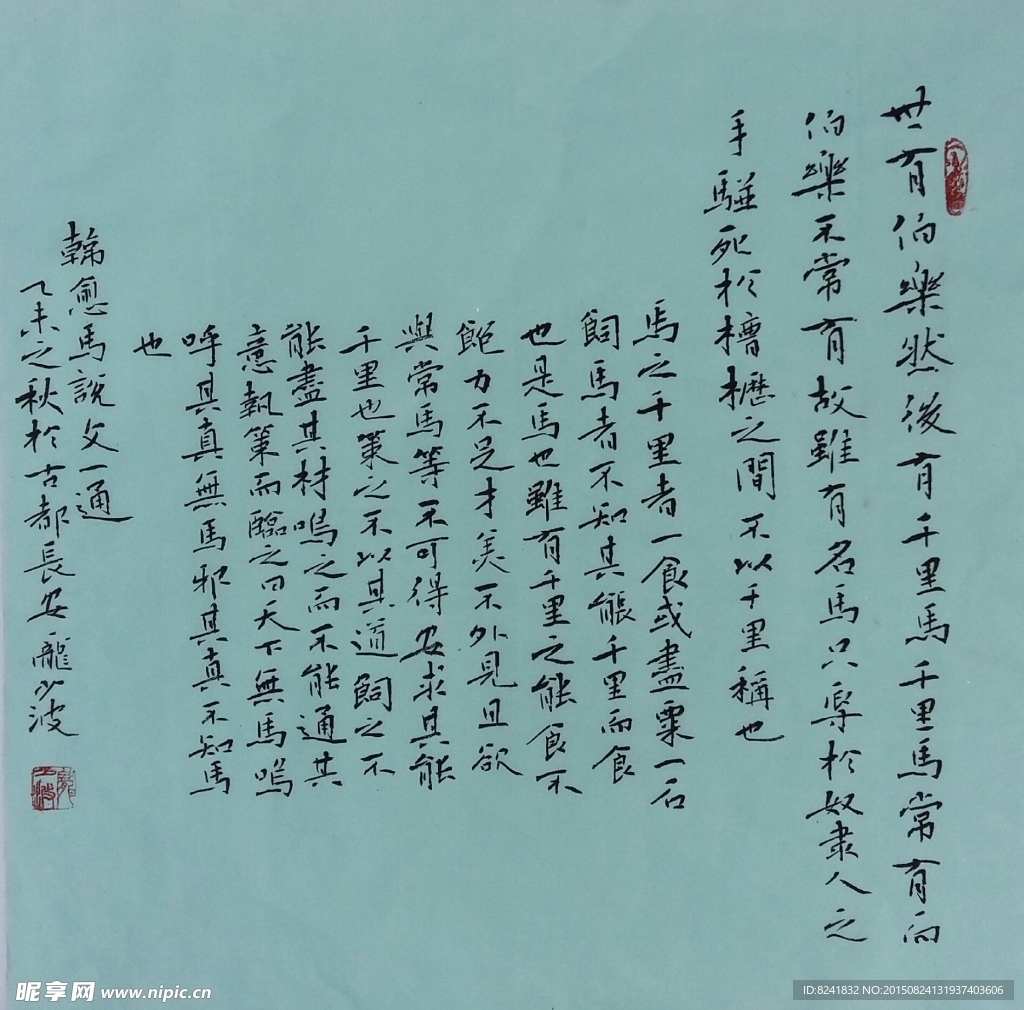 世有伯樂然後有千里馬千里馬常有而
伯樂不常有故雖有名馬只辱於奴隶人之
手騈死於槽櫪之間不以千里稱也
馬之千里者一食或盡粟一石
飼馬者不知其能千里而食
也是馬也雖有千里之能食不
飽力不足才美不外見且欲
與常馬等不可得安求其能
千里也策之不以其道飼之不
能盡其材鳴之而不能通其
意執策而臨之曰天下無馬嗚
呼其真無馬邪其真不知馬
也
韓愈馬說文一通
乙未之秋於古都長安龐少波
昵享网 www.nipic.cn
ID:8241832 NO:20150824131937403606